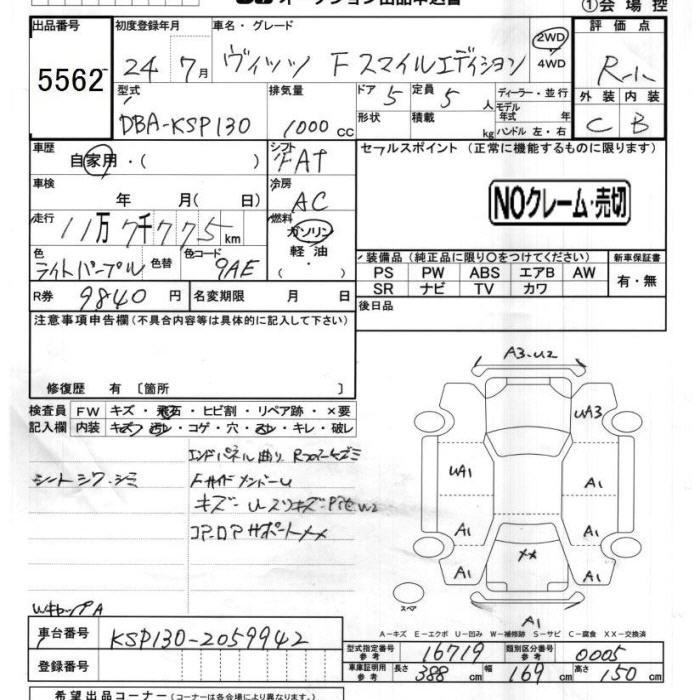 ①会場控
出品番号
5562
初度登録年月
24年7月
車名・グレード
ヴィッツ F スマイルエディション
2WD
4WD
評価点
R-1
外装 内装
C B
型式
DBA-KSP130
排気量
1000 cc
ドア 5
定員 5 人
形状
積載 kg
ディーラー・並行
モデル年式 年
ハンドル 左・右
車歴
自家用・( )
シフト
FAT
セールスポイント (正常に機能するものに限ります)
NOクレーム・売切
車検
年 月( 日)
冷房
AC
走行
11万7千775km
燃料
ガソリン
軽油
・
色
ライトパープル
色替
色コード
9AE
装備品 (純正品に限り○をつけてください)
PS PW ABS エアB AW
SR ナビ TV カワ
新車保証書
有・無
R券 9840 円
名変期限 月 日
後日品
注意事項申告欄 (不具合内容等は具体的に記入して下さい)
修復歴 有 〔箇所 〕
検査員記入欄
FW キズ・飛石・ヒビ割・リペア跡・×要
内装 キズ・汚レ・コゲ・穴・スレ・キレ・破レ
シートシワ・シミ
エンドパネル曲り
FサイドメンバーU
コアロアサポート××
WキャップA
A3.U2
UA3
UA1
A1
A1
A1
A1
A1
××
A1
スペア
A-キズ E-エクボ U-凹み W-補修跡 S-サビ C-腐食 XX-交換済
車台番号 KSP130-2059942
登録番号
型式指定番号参考 16719
類別区分番号参考 0005
車庫証明用参考 長さ 388 cm 幅 169 cm 高さ 150 cm
希望出品コーナー (コーナーは各会場により異なります)